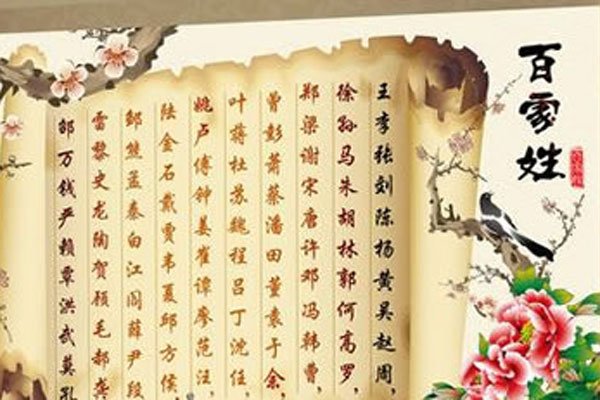 百家姓
王李张刘陈杨黄吴赵周,
徐孙马朱胡林郭何高罗,
郑梁谢宋唐许邓冯韩曹,
曾彭萧蔡潘田董袁于余,
叶蒋杜苏魏程吕丁沈任,
姚卢傅钟姜崔谭廖范汪,
陆金石戴贾韦夏邱方侯,
邹熊孟秦白江阎薛尹段
雷黎史龙陶贺顾毛郝龚
邵万钱严赖覃洪武莫孔